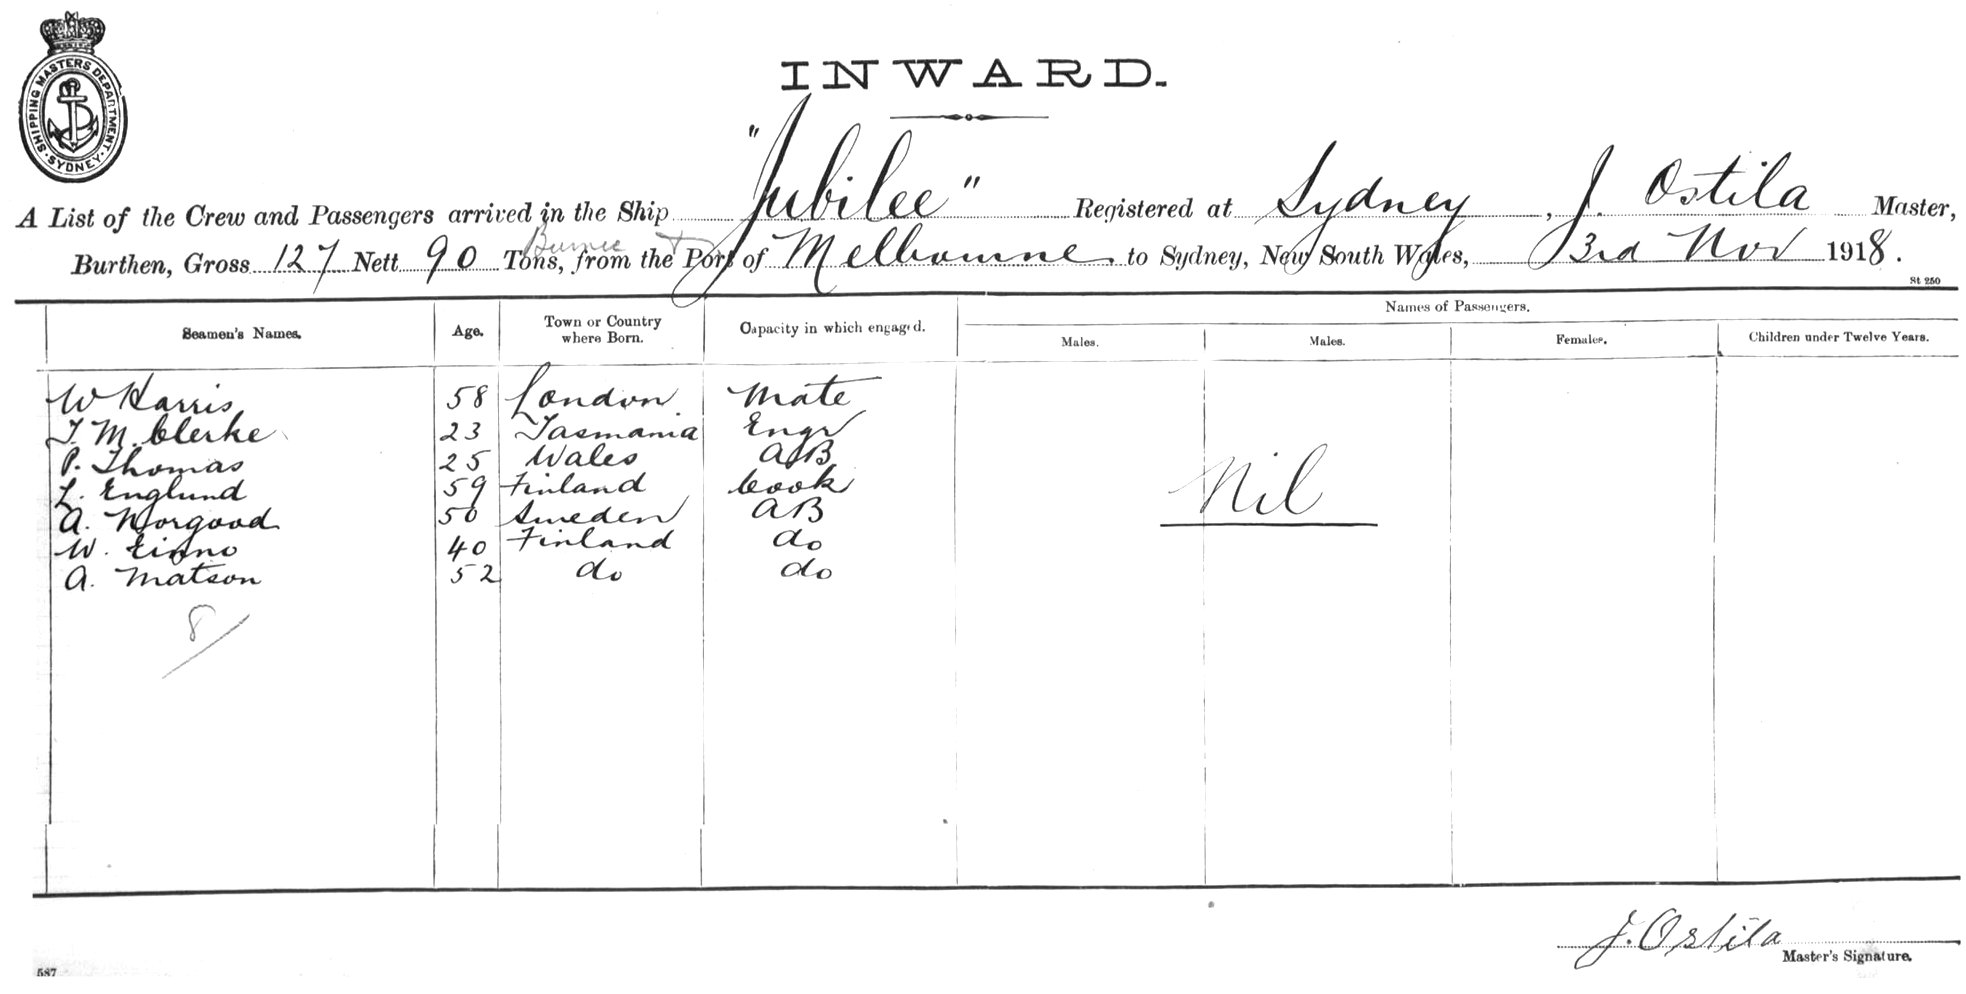 SHIPPING MASTERS DEPARTMENT · SYDNEY ·
INWARD.
A List of the Crew and Passengers arrived in the Ship "Jubilee" Registered at Sydney, J. Ostila Master,
Burnie &
Burthen, Gross 127 Nett 90 Tons, from the Port of Melbourne to Sydney, New South Wales, 3rd Nov 1918.
St 250
Seamen's Names. Age. Town or Country where Born. Capacity in which engaged. Names of Passengers.
Males. Males. Females. Children under Twelve Years.
W Harris 58 London Mate
T. M. Clerke 23 Tasmania Engr
P. Thomas 25 Wales AB
L. Englund 59 Finland Cook
A. Norgood 50 Sweden AB
W. 40 Finland do
A. Matson 52 do do
Nil
8
J. Ostila
Master's Signature.
587